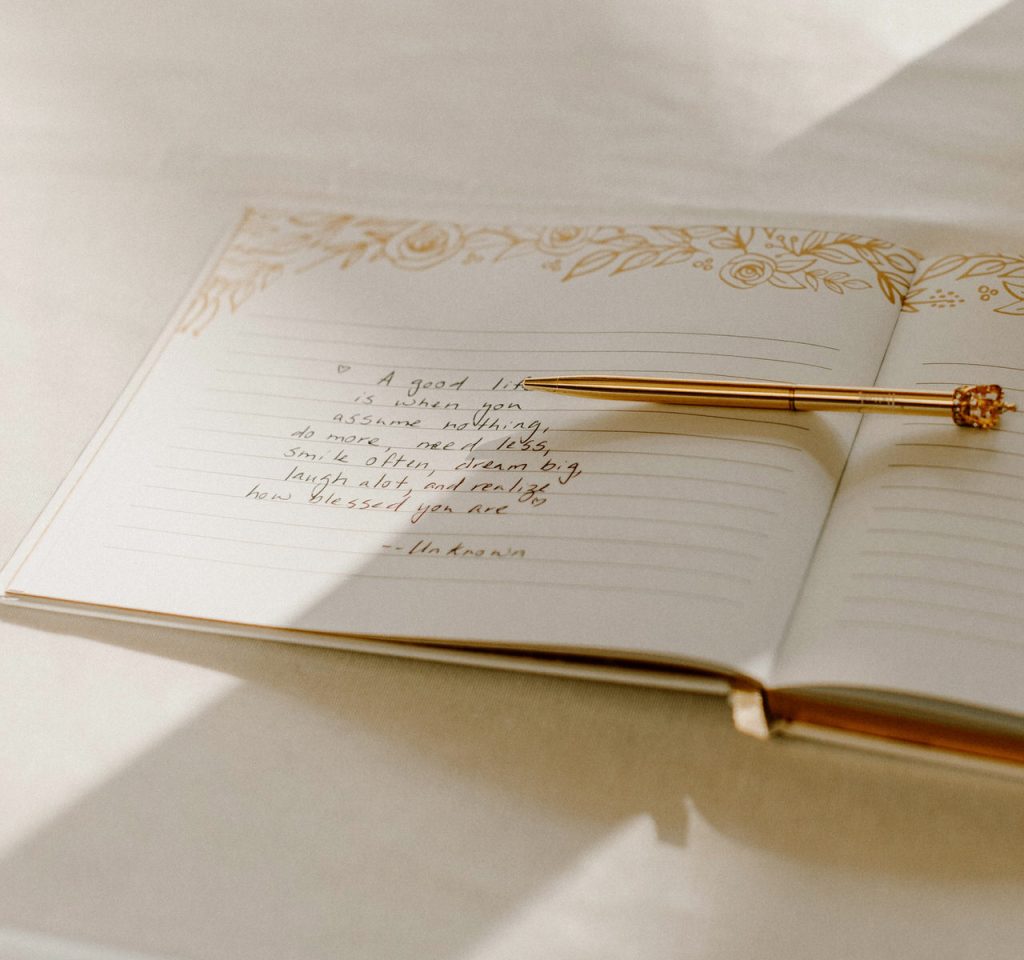 ♡ A good lif
is when you
assume nothing,
do more, need less,
smile often, dream big,
laugh alot, and realize
how blessed you are ♡
--Unknown